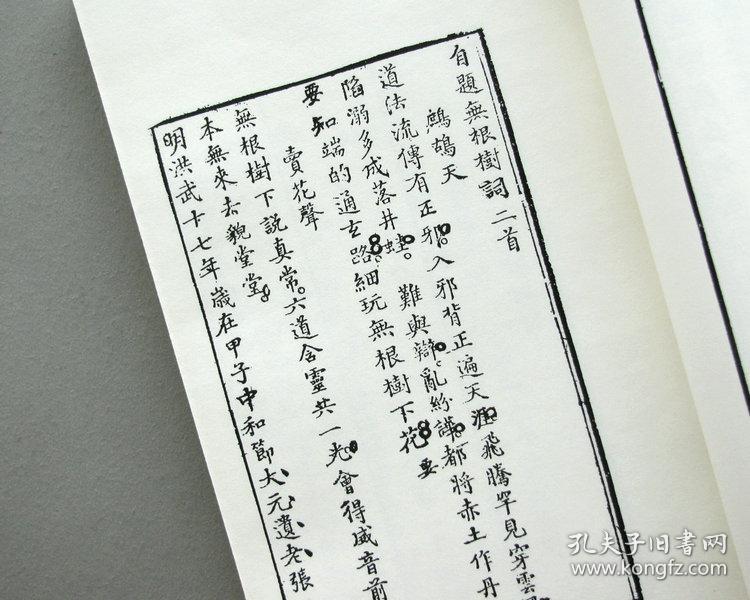 自題無根樹詞二首
鷓鴣天
道法流傳有正邪入邪背正遍天涯飛騰罕見穿雲
陷溺多成落井蛙難與辯亂紛譁都將赤土作丹
要知端的通玄路細玩無根樹下花要
賣花聲
無根樹下說真常六道含靈共一光會得威音前
本無來去貌堂堂
明洪武十七年歲在甲子中和節大元遺老張
孔夫子旧書网
www.kongfz.com